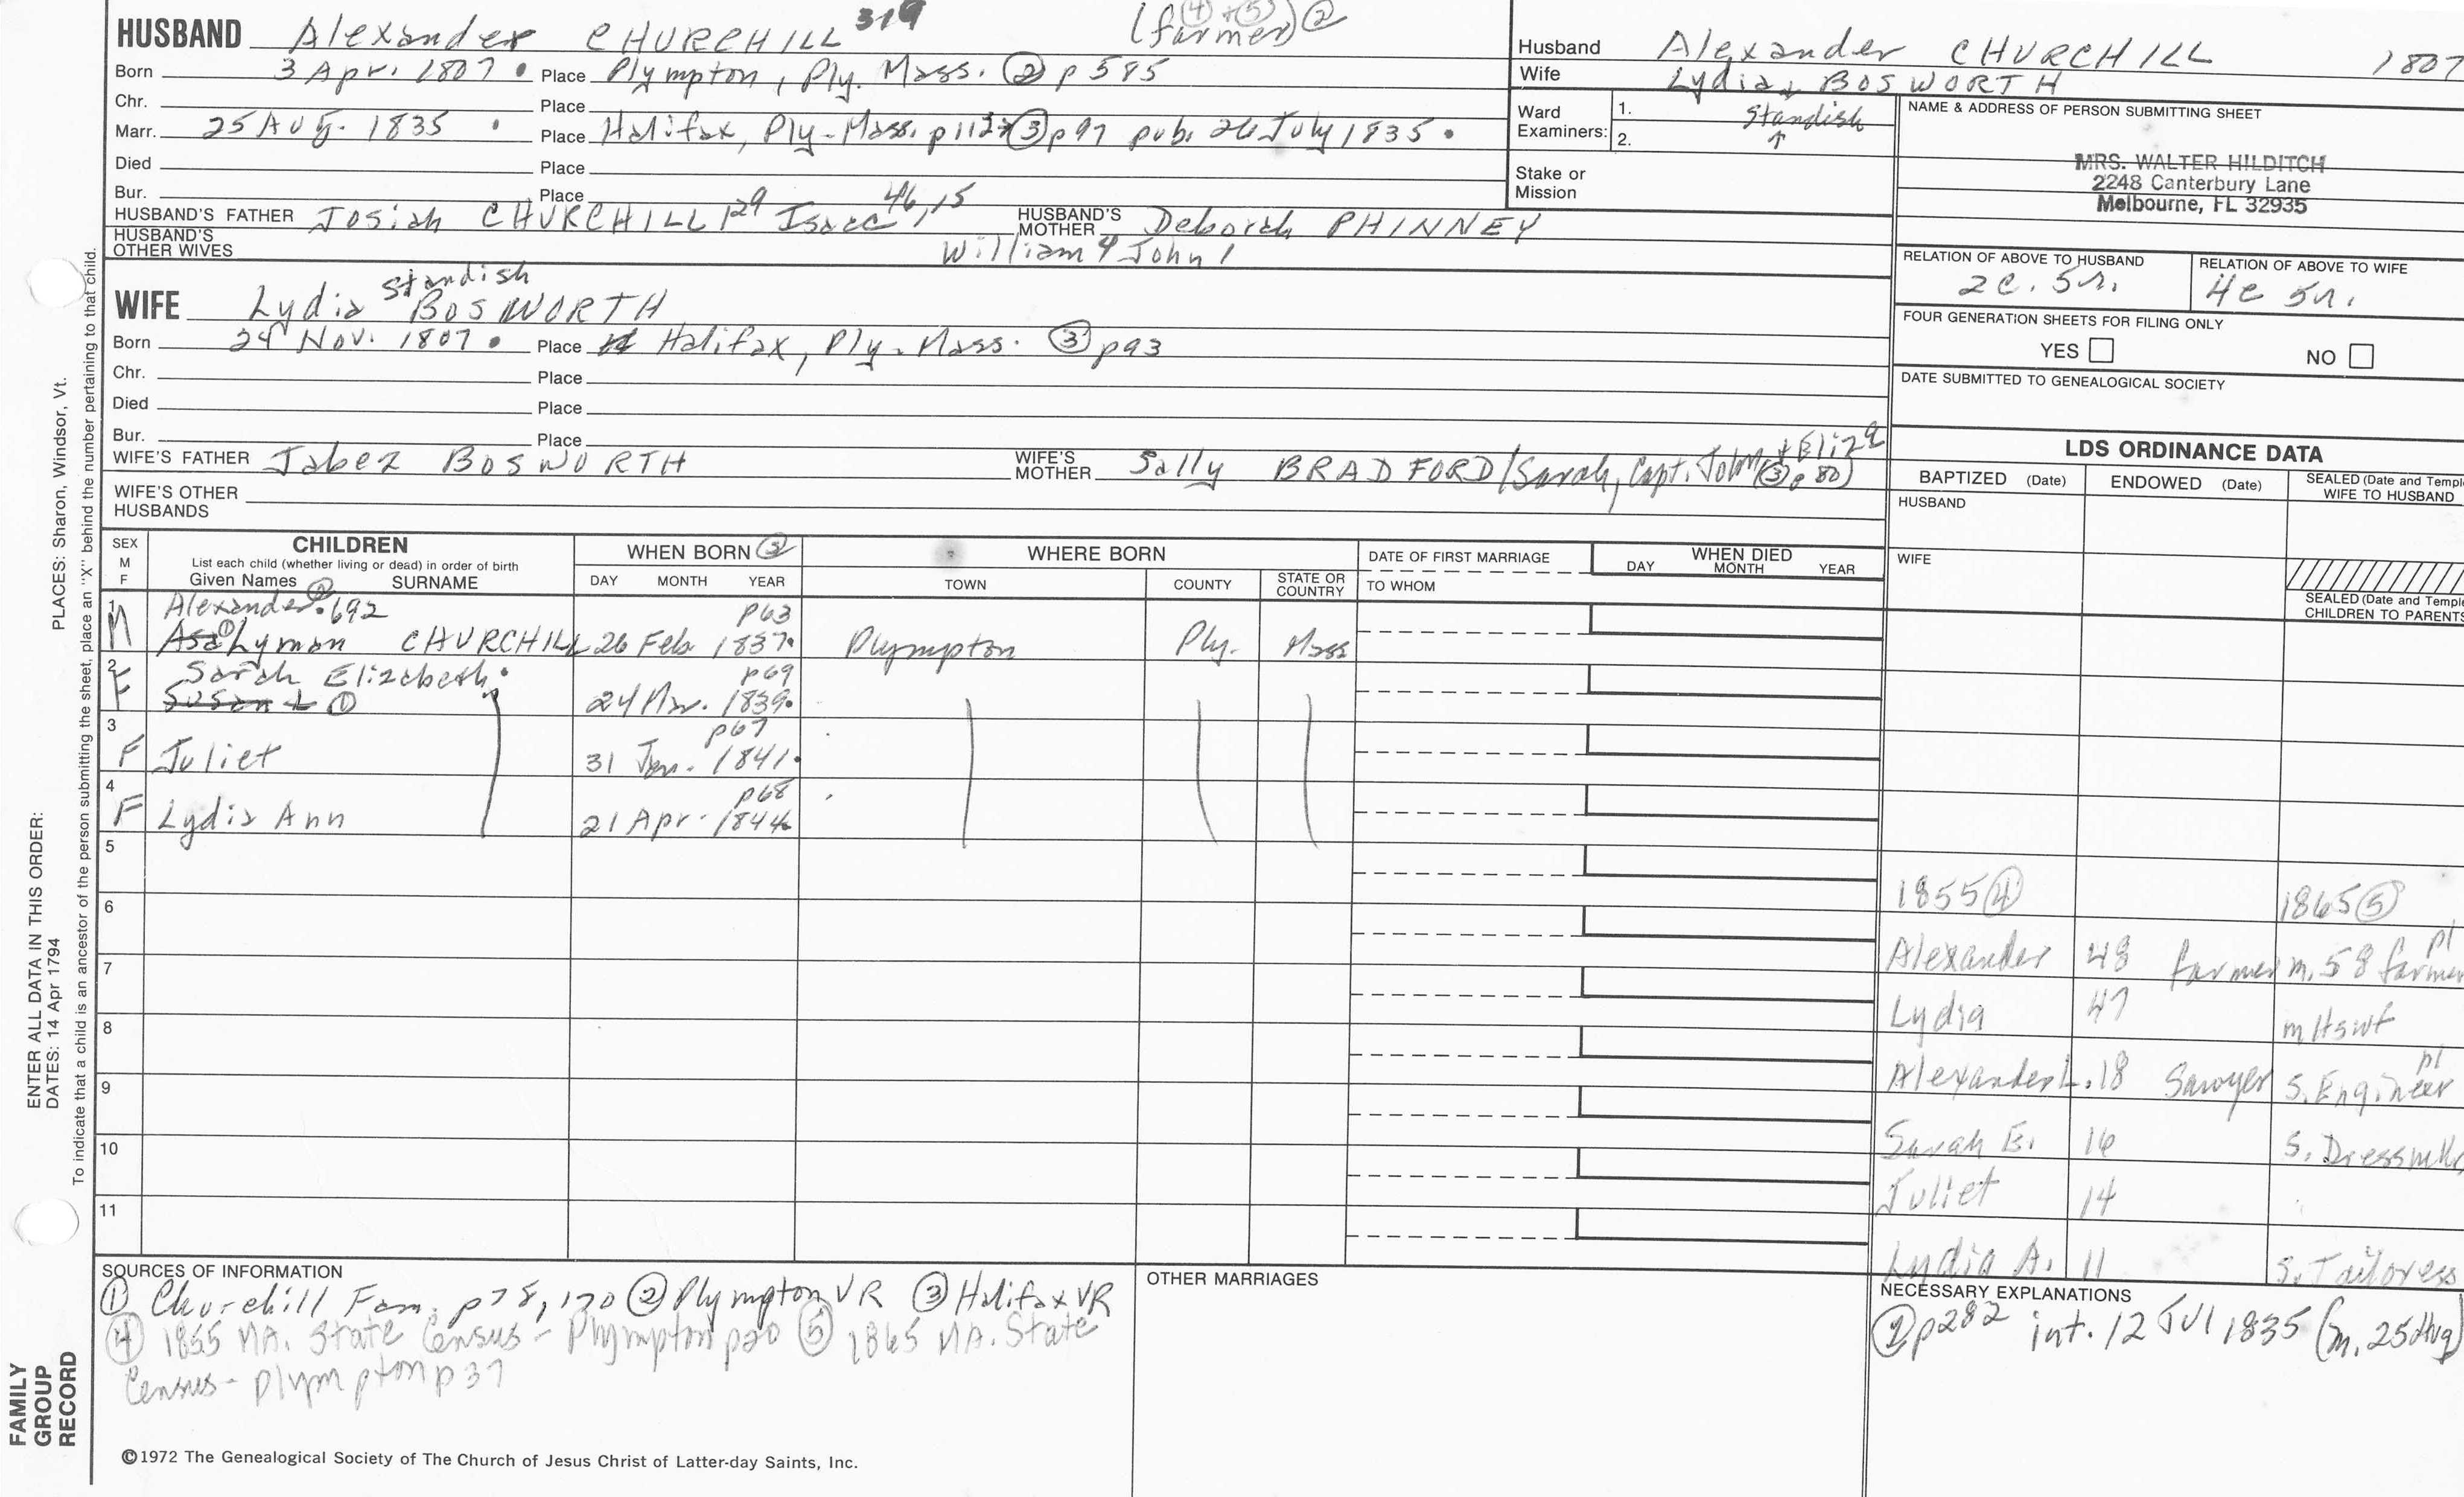 HUSBAND Alexander CHURCHILL 319 (farmer) ② (④ + ⑤)
Born 3 Apr. 1807 • Place Plympton, Ply. Mass. ② p 585
Chr. Place
Marr. 25 Aug. 1835 • Place Halifax, Ply-Mass. ③ p97 pub. 26 July 1835 •
Died Place
Bur. Place
HUSBAND'S FATHER Josiah CHURCHILL 129 Isaac 46, 15 HUSBAND'S MOTHER Deborah PHINNEY
HUSBAND'S OTHER WIVES William 4 John 1
WIFE Lydia Standish BOSWORTH
Born 24 Nov. 1807 • Place Halifax, Ply-Mass. ③ p93
Chr. Place
Died Place
Bur. Place
WIFE'S FATHER Jabez BOSWORTH WIFE'S MOTHER Sally BRADFORD/Sarah, Capt. John + Eliza (③ p 80)
WIFE'S OTHER HUSBANDS
Husband Alexander CHURCHILL 1807
Wife Lydia BOSWORTH
Standish
↑
Ward Examiners: 1.
2.
Stake or Mission
NAME & ADDRESS OF PERSON SUBMITTING SHEET
MRS. WALTER HILDITCH
2248 Canterbury Lane
Melbourne, FL 32935
RELATION OF ABOVE TO HUSBAND RELATION OF ABOVE TO WIFE
2c. 5r. 4c 5r.
FOUR GENERATION SHEETS FOR FILING ONLY
YES NO
DATE SUBMITTED TO GENEALOGICAL SOCIETY
LDS ORDINANCE DATA
BAPTIZED (Date) ENDOWED (Date) SEALED (Date and Templ
WIFE TO HUSBAND
HUSBAND
WIFE
SEALED (Date and Temple
CHILDREN TO PARENTS
SEX M F CHILDREN WHEN BORN ③ WHERE BORN DATE OF FIRST MARRIAGE WHEN DIED
List each child (whether living or dead) in order of birth
Given Names ② SURNAME DAY MONTH YEAR TOWN COUNTY STATE OR COUNTRY TO WHOM DAY MONTH YEAR
1 Alexander • 692 p63
M Asa ① Lyman CHURCHILL 26 Feb 1837 • Plympton Ply. Mass
2 Sarah Elizabeth • p69
F Susan L ① 24 Mar. 1839 •
3 p67
F Juliet 31 Jan. 1841 •
4 p68
F Lydia Ann 21 Apr. 1844
5
6
7
8
9
10
11
1855 ④ 1865 ⑤
Alexander 48 farmer m. 58 farmer pl
Lydia 47 m Hswf
Alexander L. 18 Sawyer S. Engineer pl
Sarah E. 16 S. Dressmk
Juliet 14
Lydia A. 11 S. Tailoress
SOURCES OF INFORMATION
① Churchill Fam. p78, 170 ② Plympton VR ③ Halifax VR
④ 1855 MA. State Census - Plympton p20 ⑤ 1865 MA. State
Census - Plympton p37
OTHER MARRIAGES
NECESSARY EXPLANATIONS
② p282 int. 12 Jul 1835 (m. 25 Aug)
©1972 The Genealogical Society of The Church of Jesus Christ of Latter-day Saints, Inc.
FAMILY GROUP RECORD
ENTER ALL DATA IN THIS ORDER:
DATES: 14 Apr 1794
PLACES: Sharon, Windsor, Vt.
To indicate that a child is an ancestor of the person submitting the sheet, place an "X" behind the number pertaining to that child.